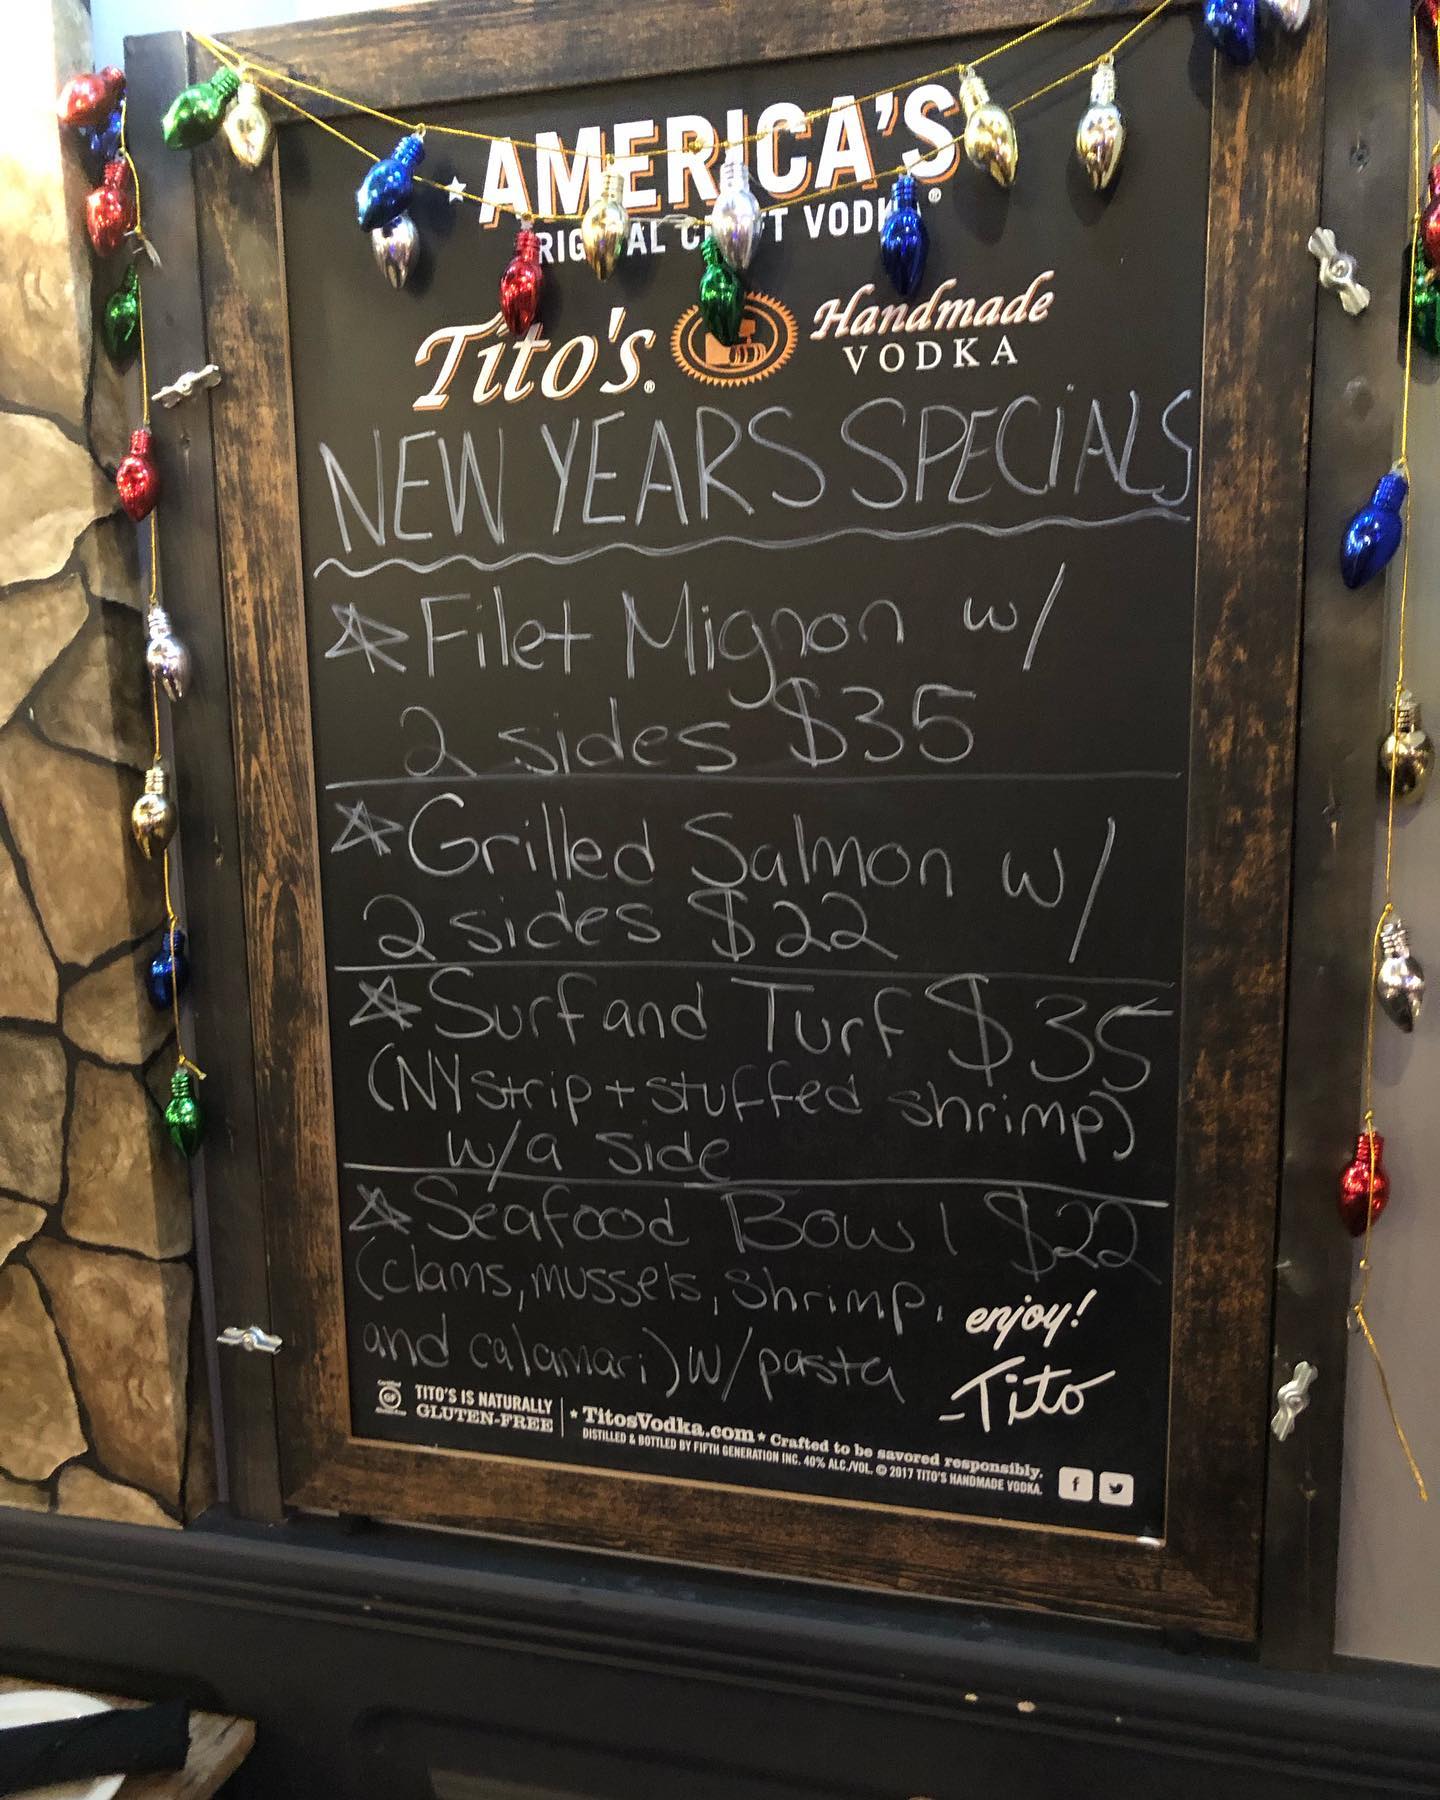 AMERICA'S
VODK
Tito's® Handmade
VODKA
NEW YEARS SPECIALS
Filet Mignon w/
2 sides $35
Grilled Salmon w/
2 sides $22
Surf and Turf $35
(NY strip + stuffed shrimp)
w/a side
Seafood Bowl $22
(clams, mussels, shrimp,
and calamari) w/pasta
enjoy!
-Tito
GF
TITO'S IS NATURALLY
GLUTEN-FREE
★ TitosVodka.com ★ Crafted to be savored responsibly.
DISTILLED & BOTTLED BY FIFTH GENERATION INC. 40% ALC./VOL. © 2017 TITO'S HANDMADE VODKA.
f